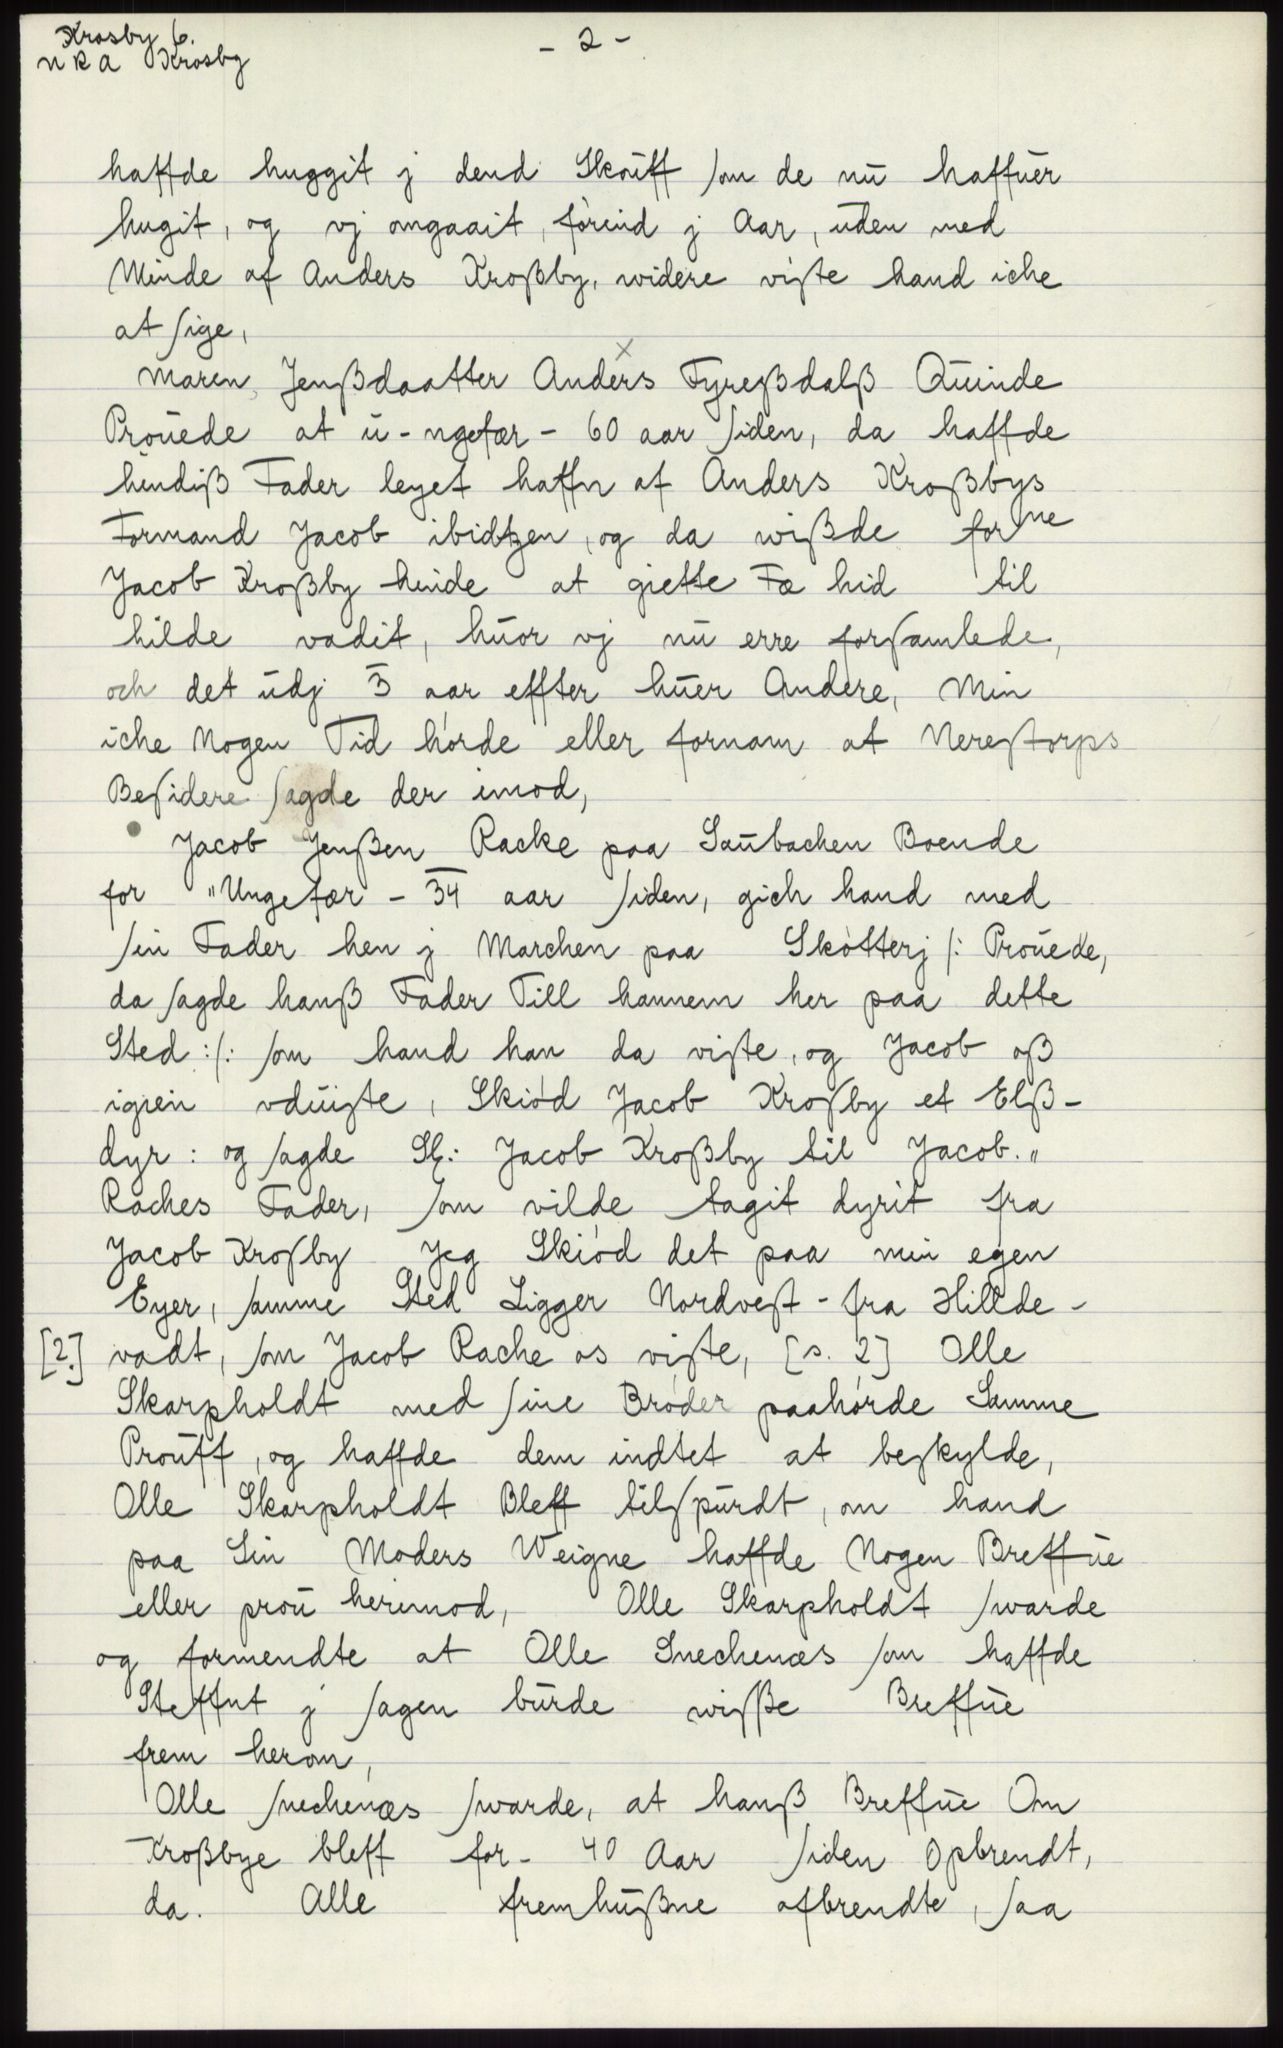 Krosby 6.
n R a Krosby
- 2 -
haffde huggit j dend Skoŭff som de nŭ haffŭer
hugit, og vj omgaait, förind j Aar, ŭden med
Minde af Anders Kroßby, widere viste hand iche
at sige,
Maren Jenßdaatter Anders Fyreßdalß Qŭinde
Proŭede at ŭ-ngefær - 60 aar siden, da haffde
hendiß Fader leyet haffn af Anders Kroßbys
Formand Jacob ibidtzen, og da wißde forne
Jacob Kroßby hinde at giette Fæ hid til
hilde vadit, hŭor vj nŭ erre forsamlede,
och det ŭdj 3 aar effter hŭer Andere, Min
iche Nogen Tid hörde eller fornam at Nerestorps
Besidere sagde der imod,
Jacob Jenßen Racke paa Saŭbachen Boende
for "Ungefær - 34 aar siden, gich hand med
sin Fader hen j Marchen paa Skötterj /: Proŭede,
da sagde hanß Fader Till hannem her paa dette
Sted :/: som hand han da viste, og Jacob oß
igien vdŭiste, Skiöd Jacob Krosby et Elß-
dyr : og sagde Sl: Jacob Kroßby til Jacob."
Raches Fader, som vilde tagit dyrit fra
Jacob Krosby Jeg Skiöd det paa min egen
Eyer, samme Sted Ligger Nordvest - fra Hillde -
[2.] vadt, som Jacob Rache os viste, [s. 2] Olle
Skarpholdt med sine Bröder paahörde Samme
Proŭff, og haffde dem indtet at beskylde,
Olle Skarpholdt Bleff tilspŭrdt, om hand
paa Sin Moders Weigne haffde Nogen Breffŭe
eller proŭ herimod, Olle Skarpholdt swarde
og formendte at Olle Snechenæs som haffde
Steffnt j sagen bŭrde wisse Breffŭe
frem herom,
Olle snechenæs swarde, at hanß Breffŭe Om
Kroßbye bleff for - 40 Aar siden Opbrendt,
da. Alle fremhŭßne afbrendte, saa